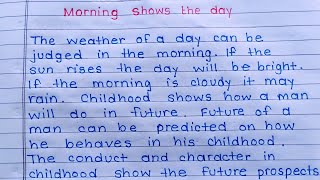 Morning shows the day
The weather of a day can be
judged in the morning. If the
sun rises the day will be bright.
If the morning is cloudy it may
rain. Childhood shows how a man
will do in future. Future of a
man can be predicted on how
he behaves in his childhood.
The conduct and character in
childhood show the future prospects